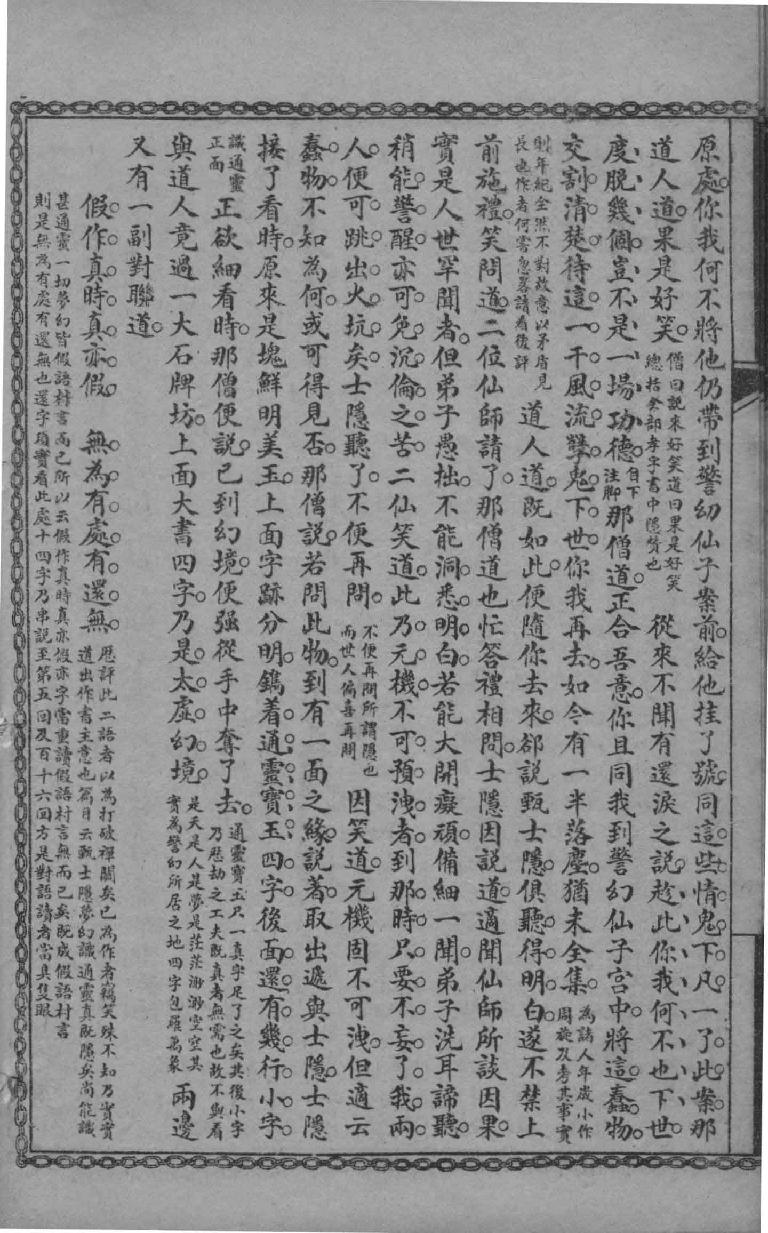 原處你我何不將他仍帶到警幻仙子案前給他挂了號同這些情鬼下凡一了此案那
道人道果是好笑僧曰說來好笑道曰果是好笑總括全部孝字書中隱贊也從來不聞有還淚之說趁此你我何不也下世
度脫幾個豈不是一場功德自下注脚那僧道正合吾意你且同我到警幻仙子宮中將這蠢物
交割清楚待這一干風流孽鬼下世你我再去如今有一半落塵猶未全集為諸人年歲小作周旋及考其事實
則年紀全然不對故意以矛盾見長也作者何嘗忽畧請看後評道人道既如此便隨你去來卻說甄士隱俱聽得明白遂不禁上
前施禮笑問道二位仙師請了那僧道也忙答禮相問士隱因說道適聞仙師所談因果
實是人世罕聞者但弟子愚拙不能洞悉明白若能大開癡頑備細一聞弟子洗耳諦聽
稍能警醒亦可免沉倫之苦二仙笑道此乃元機不可預洩者到那時只要不妄了我兩
人便可跳出火坑矣士隱聽了不便再問不便再問所謂隱也而世人偏喜再問因笑道元機固不可洩但適云
蠢物不知為何或可得見否那僧説若問此物到有一面之緣説著取出遞與士隱士隱
接了看時原來是塊鮮明美玉上面字跡分明鐫着通靈寶玉四字後面還有幾行小字
識通靈正面正欲細看時那僧便說已到幻境便强從手中奪了去通靈寶玉只一真字足了之矣其後小字乃歷劫之工夫既真者無需也故不與看
與道人竟過一大石牌坊上面大書四字乃是太虛幻境是天是人是夢是茫茫渺渺空空其實為警幻所居之地四字包羅萬象兩邊
又有一副對聯道
假作真時真亦假　無為有處有還無歷評此二語者以為打破禪關矣已為作者竊笑殊不知乃實實道出作書主意也篇目云甄士隱夢幻識通靈真既隱矣尚能識
甚通靈一切夢幻皆假語村言而已所以云假作真時真亦假亦字當重讀假語村言無而已矣既成假語村言
則是無為有處有還無也還字須實看此處十四字乃串説至第五回及百十六回方是對語讀者當具隻眼